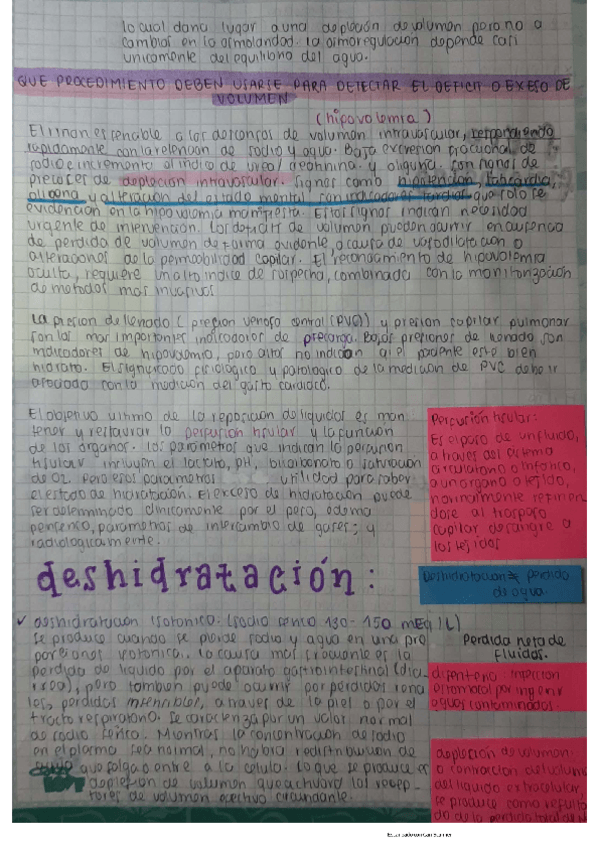 lo cual dana lugar a una depleción de volumen pero no a
cambios en la osmolaridad. la osmoregulación depende casi
unicamente del equilibrio del agua.
QUE PROCEDIMIENTO DEBEN USARSE PARA DETECTAR EL DEFICIT O EXESO DE
VOLUMEN
(hipovolemia)
El riñon es sensible a los descensos de volumen intravascular, respondiendo
rapidamente con la retencion de sodio y agua. Baja excreción fraccional de
sodio e incremento al indice de urea/creatinina. y oliguria. son signos de
precoces de deplecion intravascular. Signos como hipotencion, taticardia,
oliguria y alteración del estado mental son indicadores tardios que solo se
evidencian en la hipovolemia manifiesta. Estos signos indican necesidad
urgente de intervención. Los deficits de volumen pueden ocurrir en ausencia
de perdida de volumen de forma evidente, a causa de vasodilatacion o
alteraciones de la permeabilidad capilar. El reconocimiento de hipovolemia
oculta, requiere un alto indice de sospecha, combinado con la monitorización
de metodos mas invasivos
La presion de llenado (presion venosa central (PVC)) y presion capilar pulmonar
son las mas importantes indicadores de precarga. Bajas presiones de llenado son
indicadores de hipovolemia, pero altas no indican si el paciente esta bien
hidrato. El significado fisiologico y patologico de la medicion de PVC debe ir
asociado con la medicion del gasto cardiaco.
El objetivo ultimo de la reposicion de liquidos es man
tener y restaurar la perfusión tisular y la funcion
de los organos. Los parametros que indican la perfusion
tisular incluyen el lactato, pH, bicarbonato o saturacion
de O2. Pero esos parametros utilidad para saber
el estado de hidratación. El exceso de hidratación puede
ser determinado clinicamente por el peso, edema
periferico, parametros de intercambio de gases; y
radiologicamente.
Perfusión tisular:
Es el paso de un fluido,
a traves del sistema
circulatorio o linfatico,
a un organo o tejido,
normalmente refirien
dose al traspaso
capilar de sangre a
los tejidos
deshidratación:
Deshidratacion ≠ perdida
de agua.
✓ deshidratación isotonica. (sodio serico 130-150 mEq/L)
se produce cuando se pierde sodio y agua en una pro
porciones isotonica. la causa mas frecuente es la
perdida de liquido por el aparato gastrointestinal (dia
rrea), pero tambien puede ocurrir por perdidas rena
les, perdidas insensibles, a traves de la piel o por el
tracto respiratorio. Se caracteriza por un valor normal
de sodio serico. Mientras la concentracion de sodio
en el plasma sea normal, no habra redistribucion de
que salga o entre a la celula. Lo que se produce es
deplecion de volumen que activara los recep-
tores de volumen efectivo circundante.
Perdida neta de
fluidos.
disenteria: infeccion
estomacal por ingerir
aguas contaminadas.
depleción de volumen:
o contraccion del volumen
del liquido extracelular,
se produce como resulta
do de la perdida total de
Escaneado con CamScanner